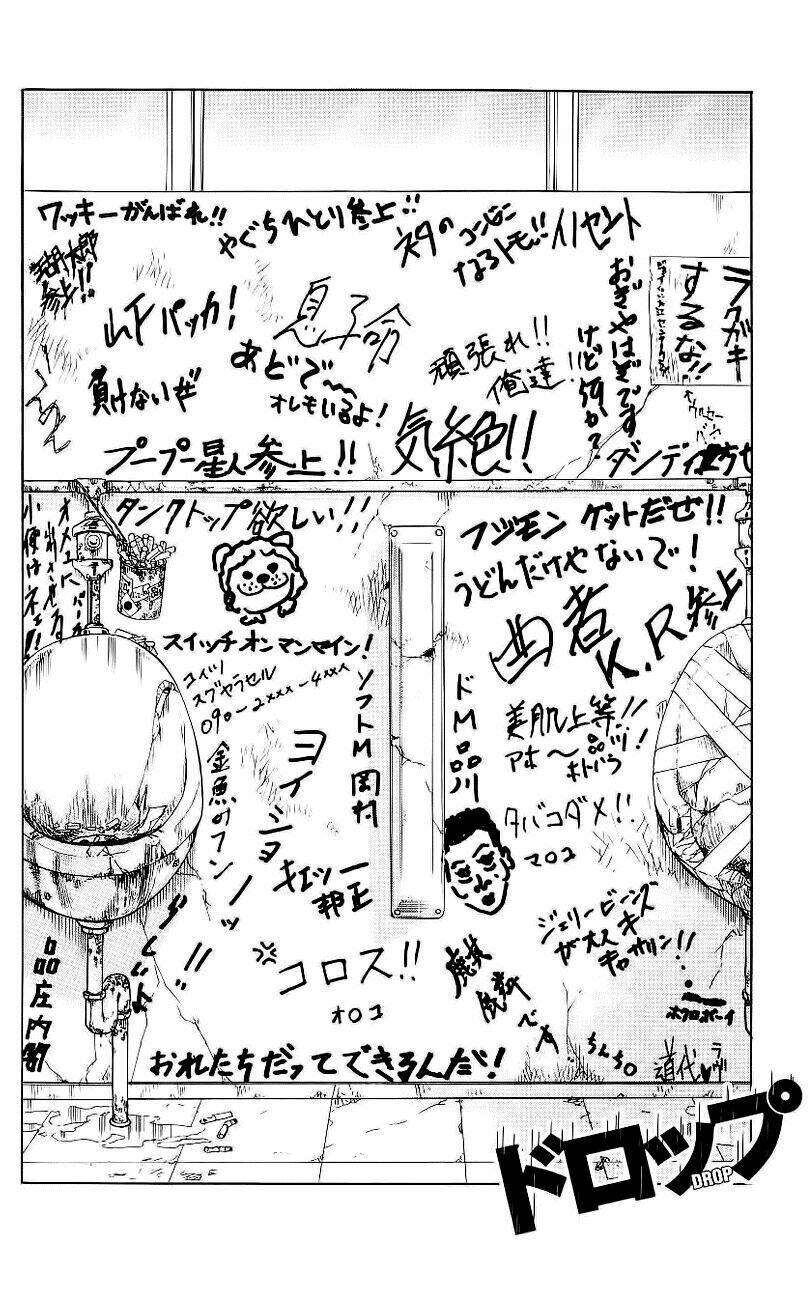 ワッキーがんばれ!!
やぐちひとり参上!!
ネタの
コンビニ
なるトモ!!
イノセント
ラクガキ
するな!!
参上!!
山下パッカ!
息子命
おぎやはぎです
けど何か?
頑張れ!!
俺達!!
あどで〜
オレもいるよ!
負けないぜ
プープー星人参上!!
気絶!!
ダンディ
タンクトップ欲しい!!
フジモンゲットだぜ!!
うどんだけやないで!
小便はネェ!!
スイッチオンマンマイン!
コイツ
スグヤラセル
090-2xxx-4xxx
酉者
K.R参上
ソフトM岡村
ドM品川
美肌上等!!
アホ〜品ツ!
ホトバラ
ヨイショーッ
金魚のフン
タバコダメ!!
マロユ
キエッー
邦正
ジェリービーンズ
が大スキ
キャサリン!!
コロス!!
オロコ
麒麟です
ホクロボーイ
品庄内閣
おれたちだってできるんだ!
ちんちろ
道代
ラヴ!
ドロップ
DROP